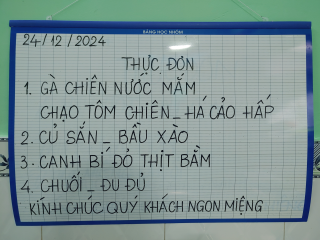 BẢNG HỌC NHÓM
24/12/2024
THỰC ĐƠN
1. GÀ CHIÊN NƯỚC MẮM
CHẠO TÔM CHIÊN_HÁ CẢO HẤP
2. CỦ SẮN_ BẦU XÀO
3. CANH BÍ ĐỎ THỊT BẰM
4. CHUỐI_ ĐU ĐỦ
KÍNH CHÚC QUÝ KHÁCH NGON MIỆNG